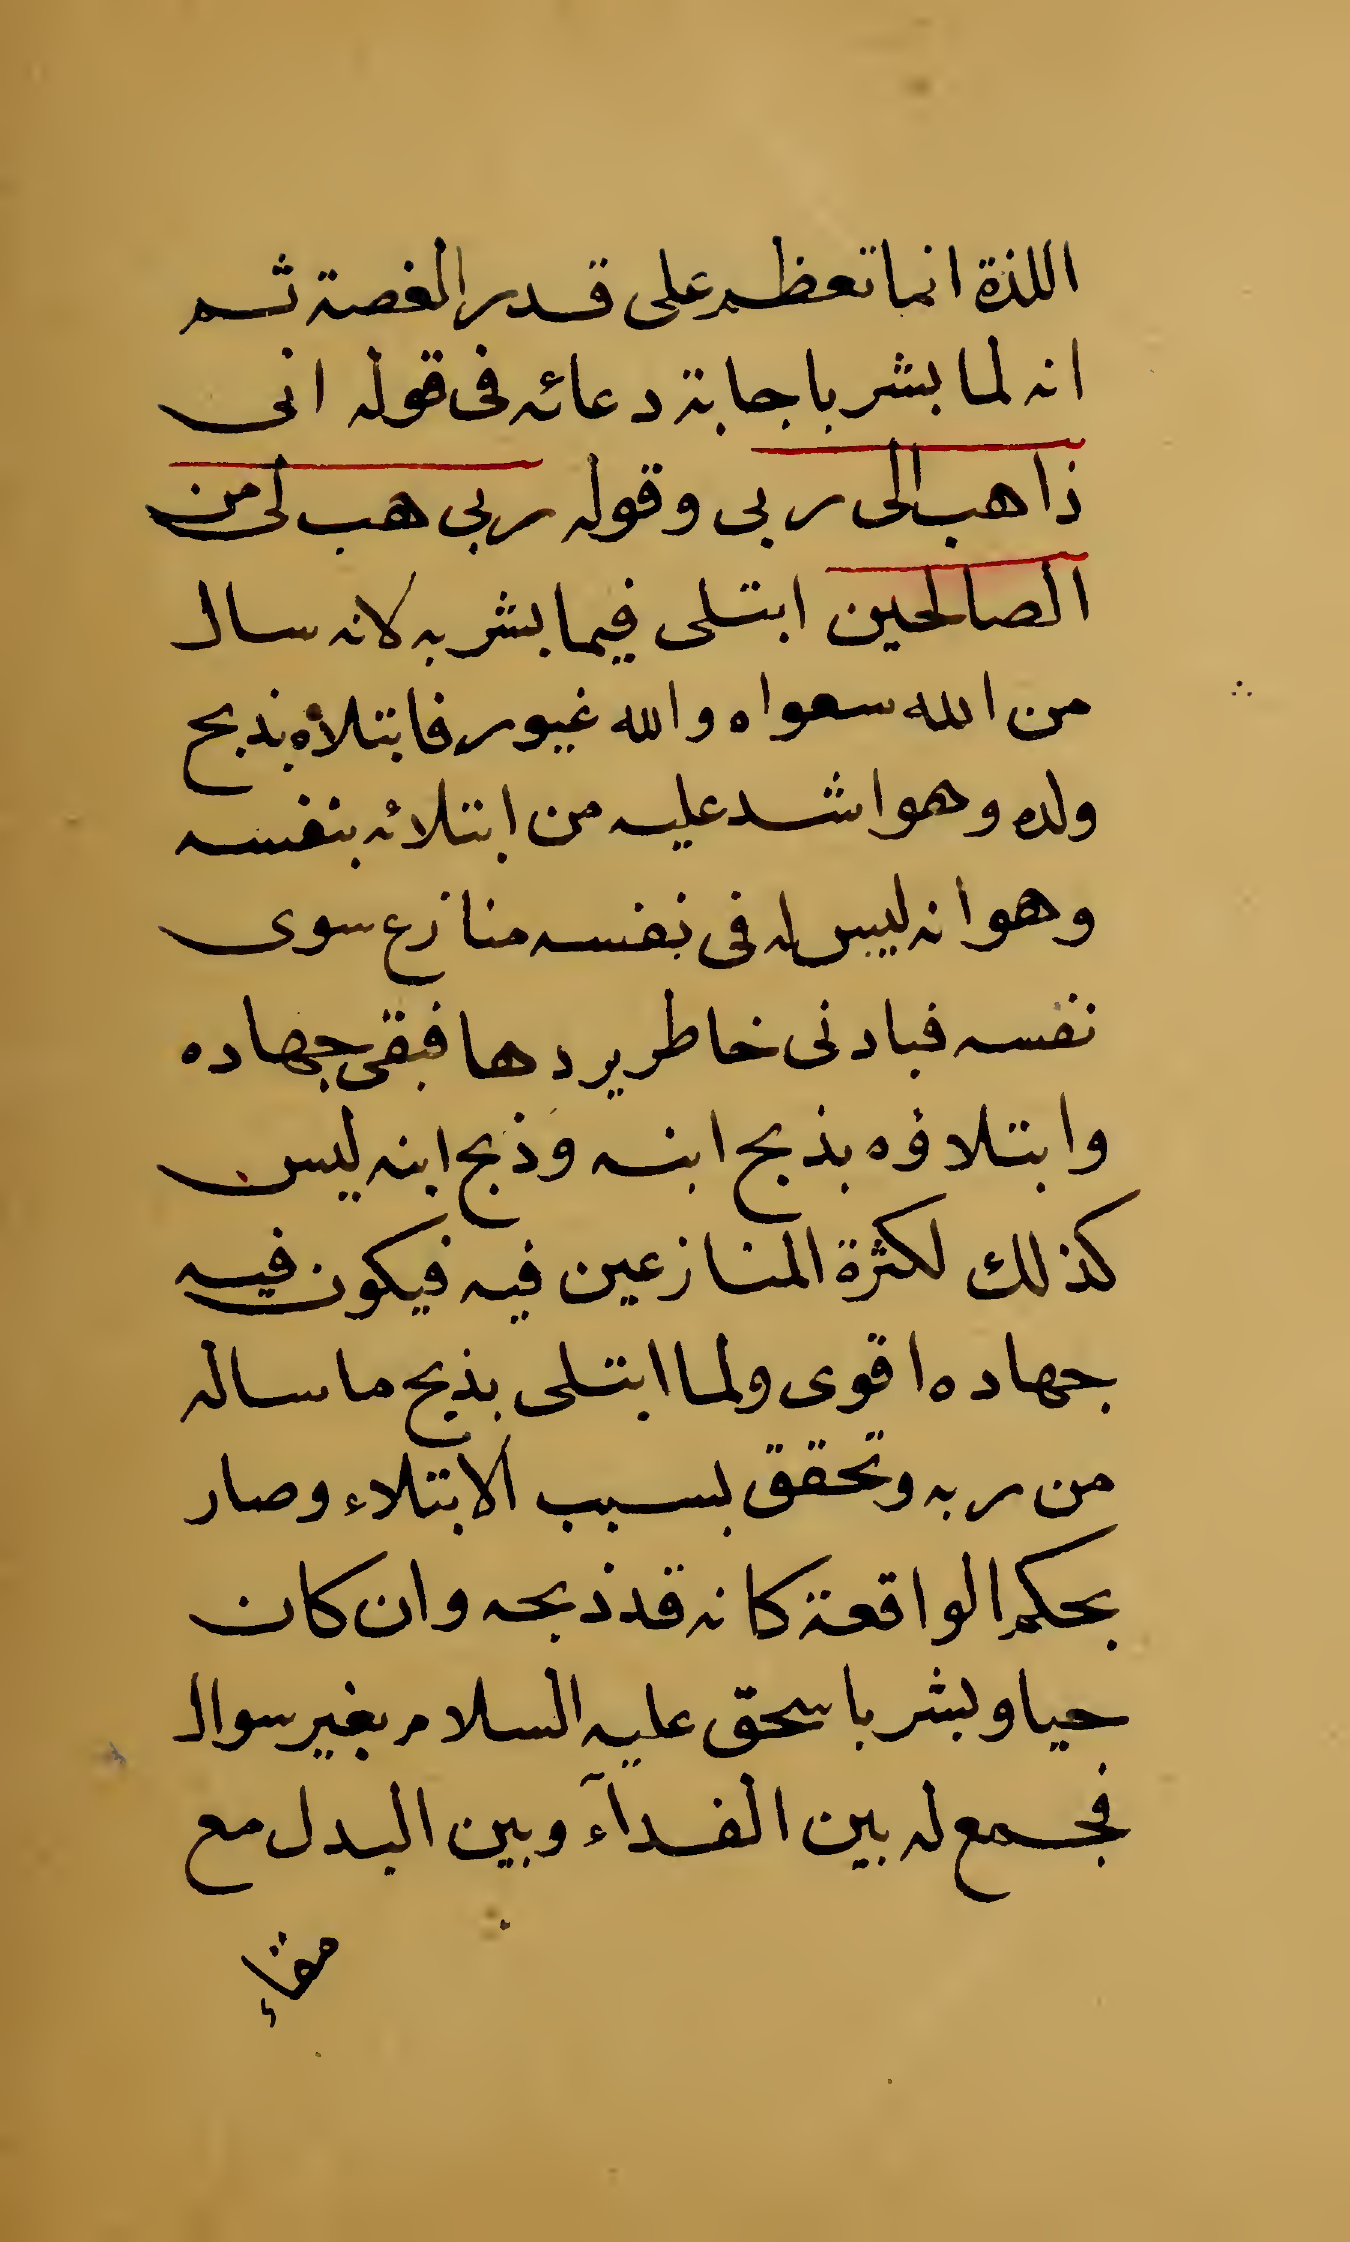 اللذة انما تعظم على قدر الغصة ثم
انه لما بشر باجابة دعائه فى قوله انى
ذاهب الى ربى وقوله ربى هب لى من
الصالحين ابتلى فيما بشر به لانه سال
من الله سعواه والله غيور فابتلاه بذبح
ولده وهو اشد عليه من ابتلائه بنفسه
وهو انه ليس له فى نفسه منازع سوى
نفسه فبادنى خاطر يردها فبقى جهاده
وابتلاؤه بذبح ابنه وذبح ابنه ليس
كذلك لكثرة المنازعين فيه فيكون فيه
جهاده اقوى ولما ابتلى بذبح ما ساله
من ربه وتحقق بسبب الابتلاء وصار
بحكم الواقعة كانه قد ذبحه وان كان
حيا وبشر باسحق عليه السلام بغير سوال
فجمع له بين الفدآء وبين البدل مع